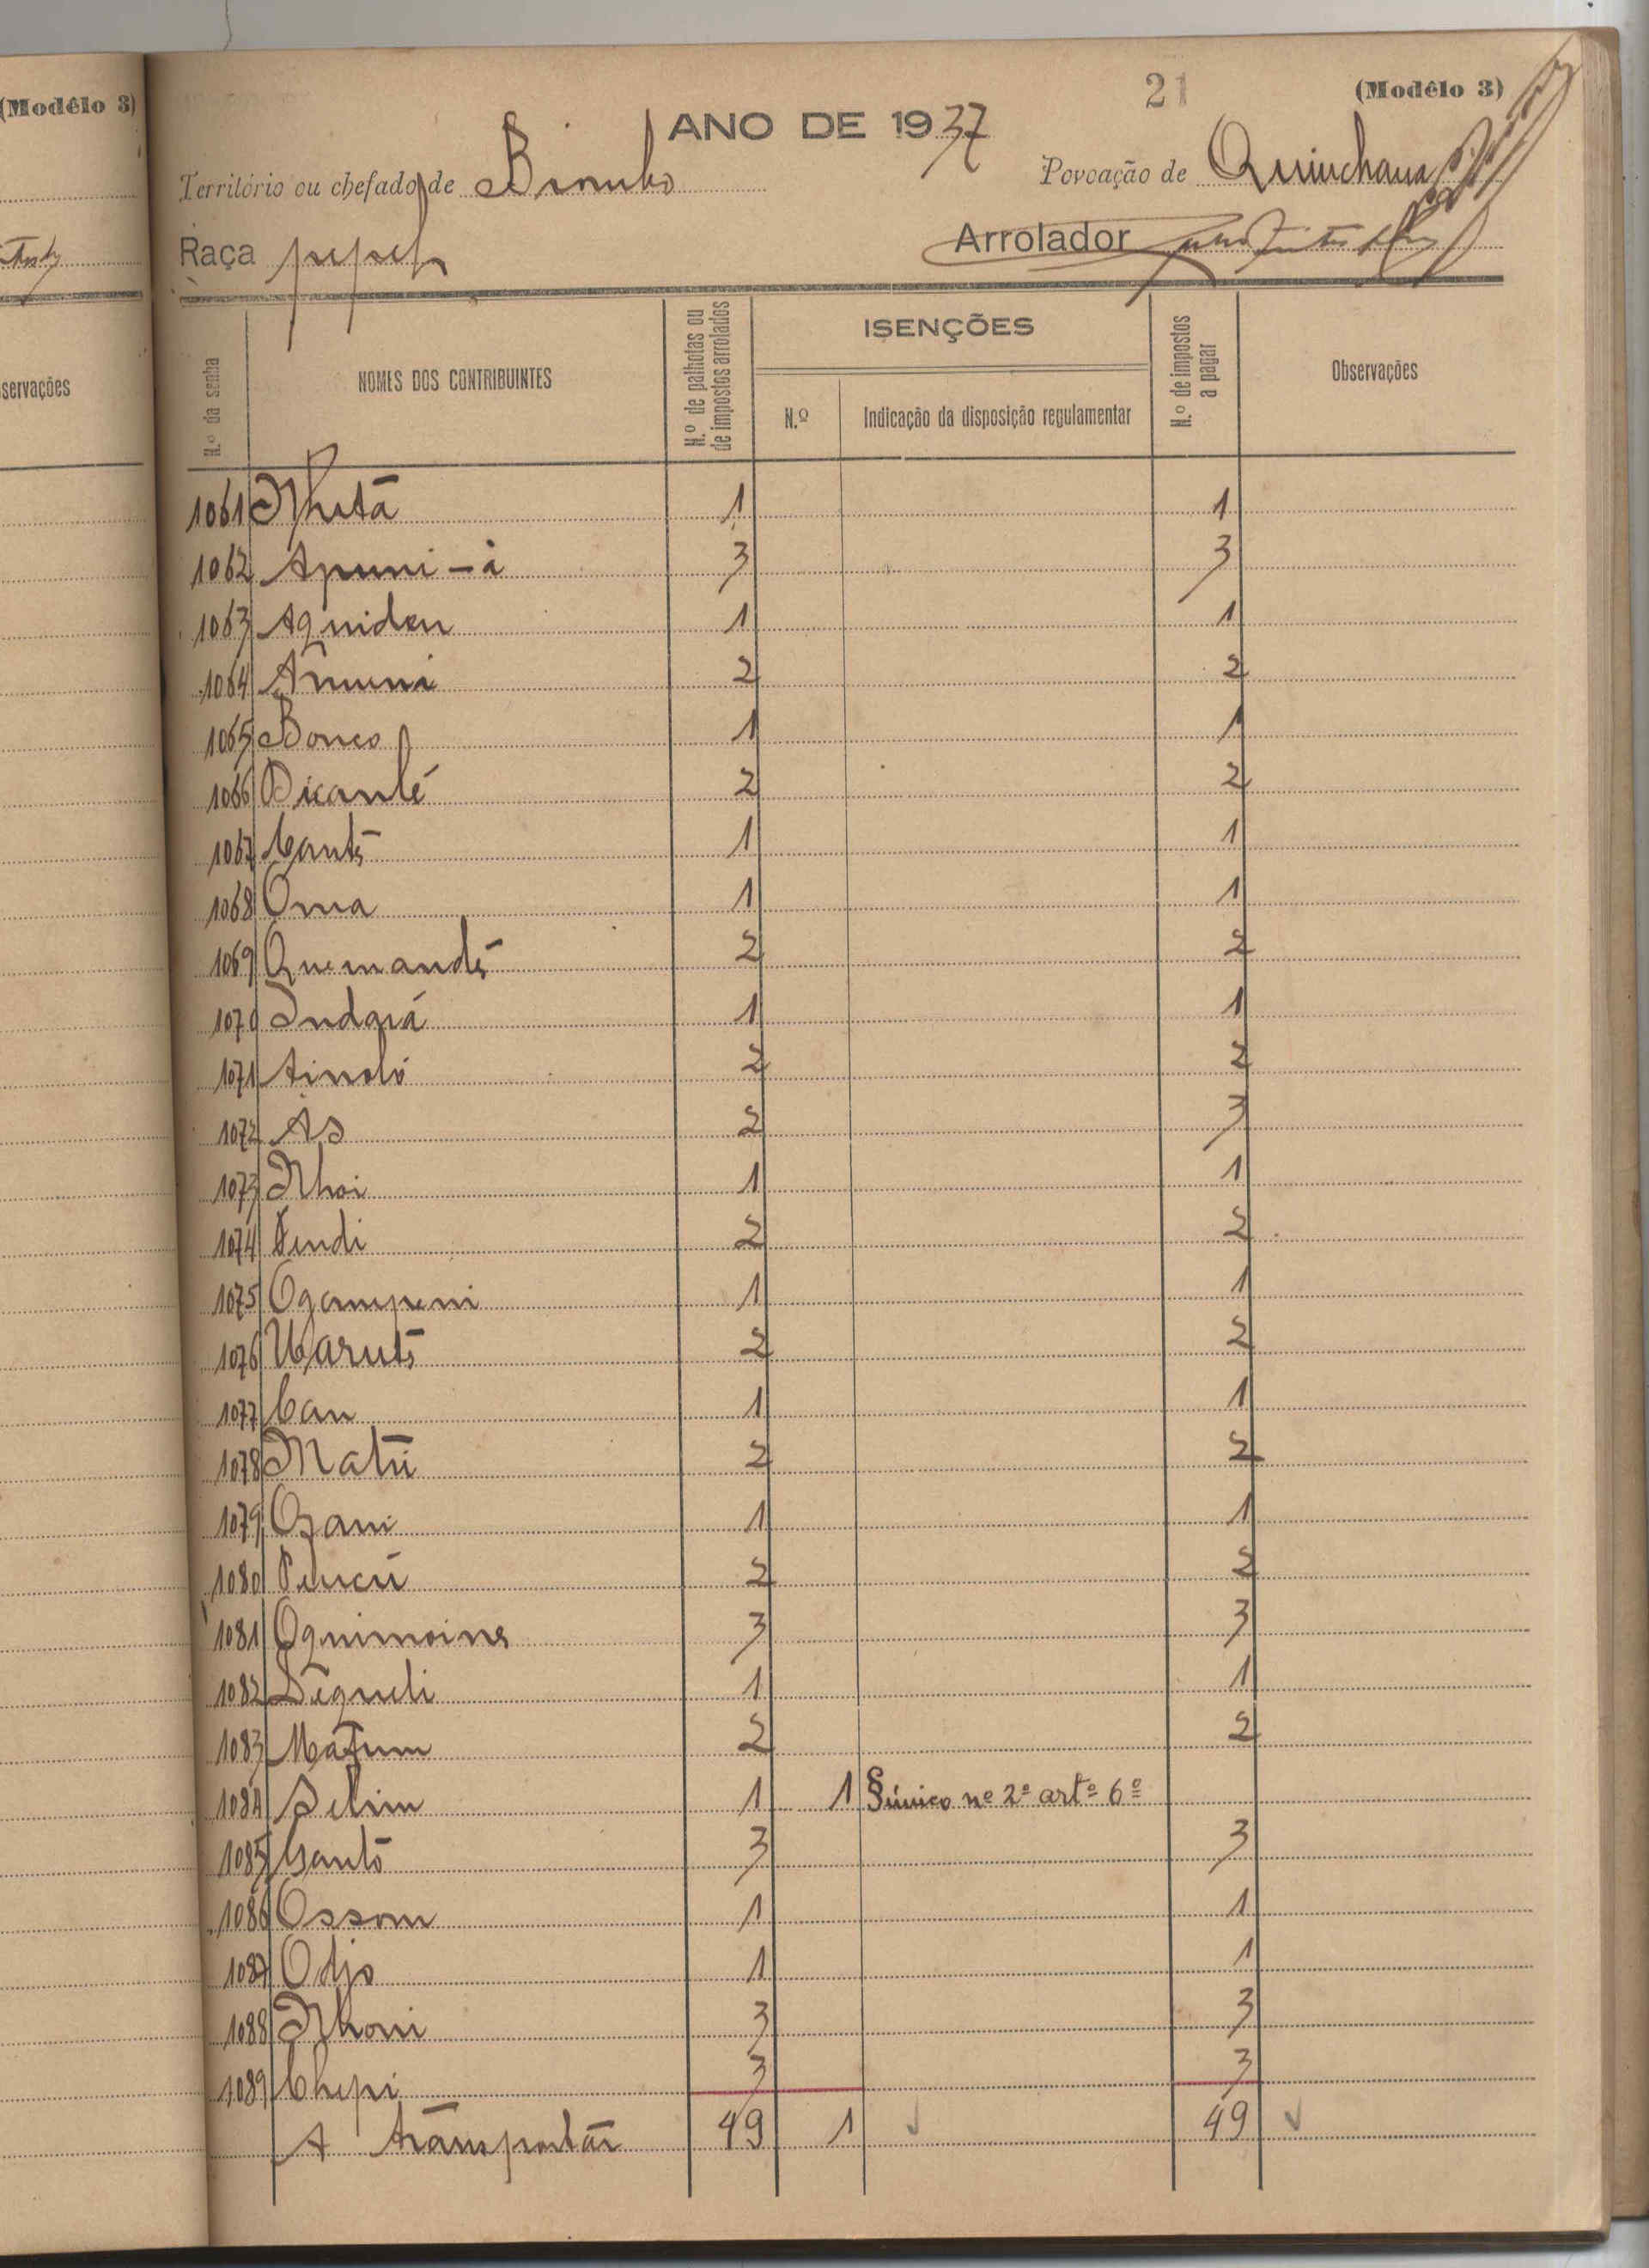 (Modêlo 3)
21
(Modêlo 3)
ANO DE 1937
Território ou chefado de Biombo
Povoação de Quinchana
Raça pepel
Arrolador
servações
N.º da senha
NOMES DOS CONTRIBUINTES
N.º de palhotas ou de impostos arrolados
ISENÇÕES
N.º
Indicação da disposição regulamentar
N.º de impostos a pagar
Observações
1061 Nhutã 1 1
1062 Apuni-à 3 3
1063 Aquidan 1 1
1064 Amuni 2 2
1065 Bonco 1 1
1066 Dicanlé 2 2
1067 Cantõ 1 1
1068 Oma 1 1
1069 Quemandõ 2 2
1070 Indaiá 1 1
1071 Ainoló 2 2
1072 As 2 3
1073 Nhoi 1 1
1074 Pendi 2 2
1075 Ogampeni 1 1
1076 Marutõ 2 2
1077 Can 1 1
1078 Natu 2 2
1079 Osani 1 1
1080 Pencú 2 2
1081 Oquimoine 3 3
1082 Dègueli 1 1
1083 Matum 2 2
1084 Selim 1 1 § único nº 2º artº 6º
1085 Santõ 3 3
1086 Ossom 1 1
1087 Odjo 1 1
1088 Nhoni 3 3
1089 Chepi 3 3
A transportar 49 1 49